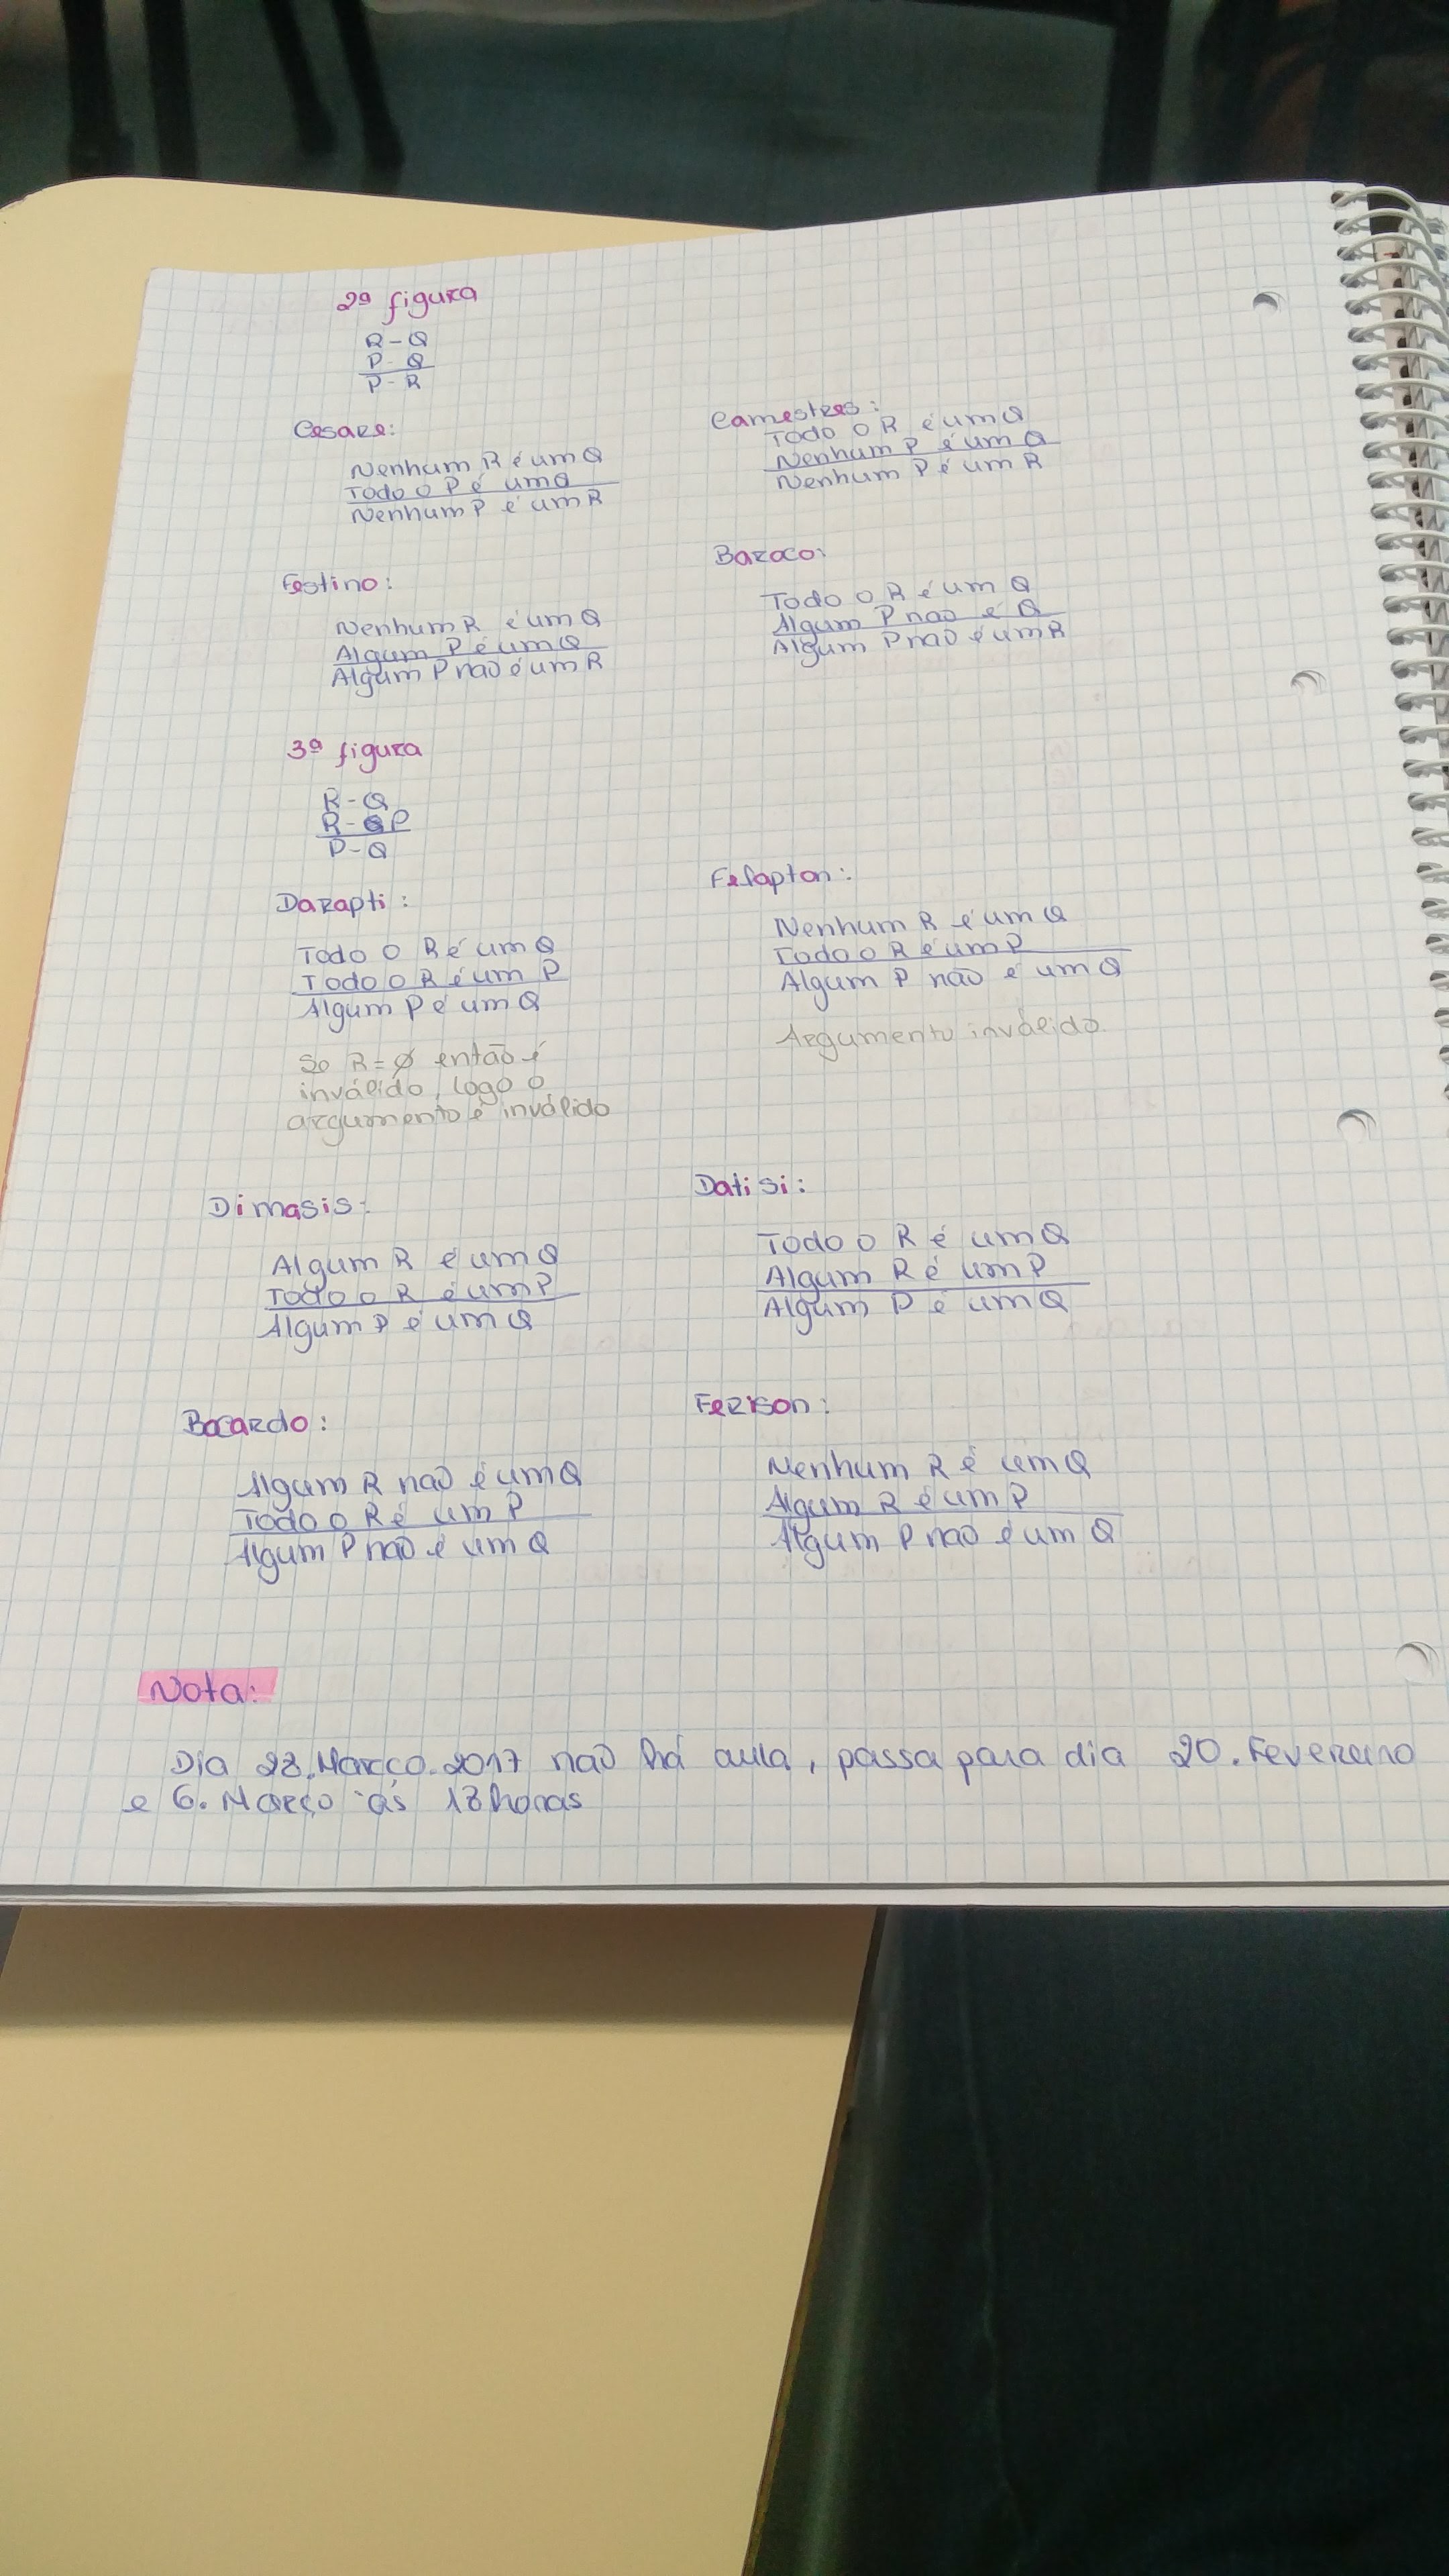 2ª figura
R-Q
P-Q
P-R
Cesare:
Nenhum R é um Q
Todo o P é um Q
Nenhum P é um R
Camestres:
Todo o R é um Q
Nenhum P é um Q
Nenhum P é um R
Festino:
Nenhum R é um Q
Algum P é um Q
Algum P não é um R
Baroco:
Todo o R é um Q
Algum P não é Q
Algum P não é um R
3ª figura
R-Q
R-P
P-Q
Darapti:
Todo o R é um Q
Todo o R é um P
Algum P é um Q
Se R=∅ então é
inválido, logo o
argumento é inválido
Felapton:
Nenhum R é um Q
Todo o R é um P
Algum P não é um Q
Argumento inválido.
Dimasis:
Algum R é um Q
Todo o R é um P
Algum P é um Q
Datisi:
Todo o R é um Q
Algum R é um P
Algum P é um Q
Bocardo:
Algum R não é um Q
Todo o R é um P
Algum P não é um Q
Ferison:
Nenhum R é um Q
Algum R é um P
Algum P não é um Q
Nota:
Dia 28.Março.2017 não há aula, passa para dia 20.Fevereiro
e 6.Março às 18horas